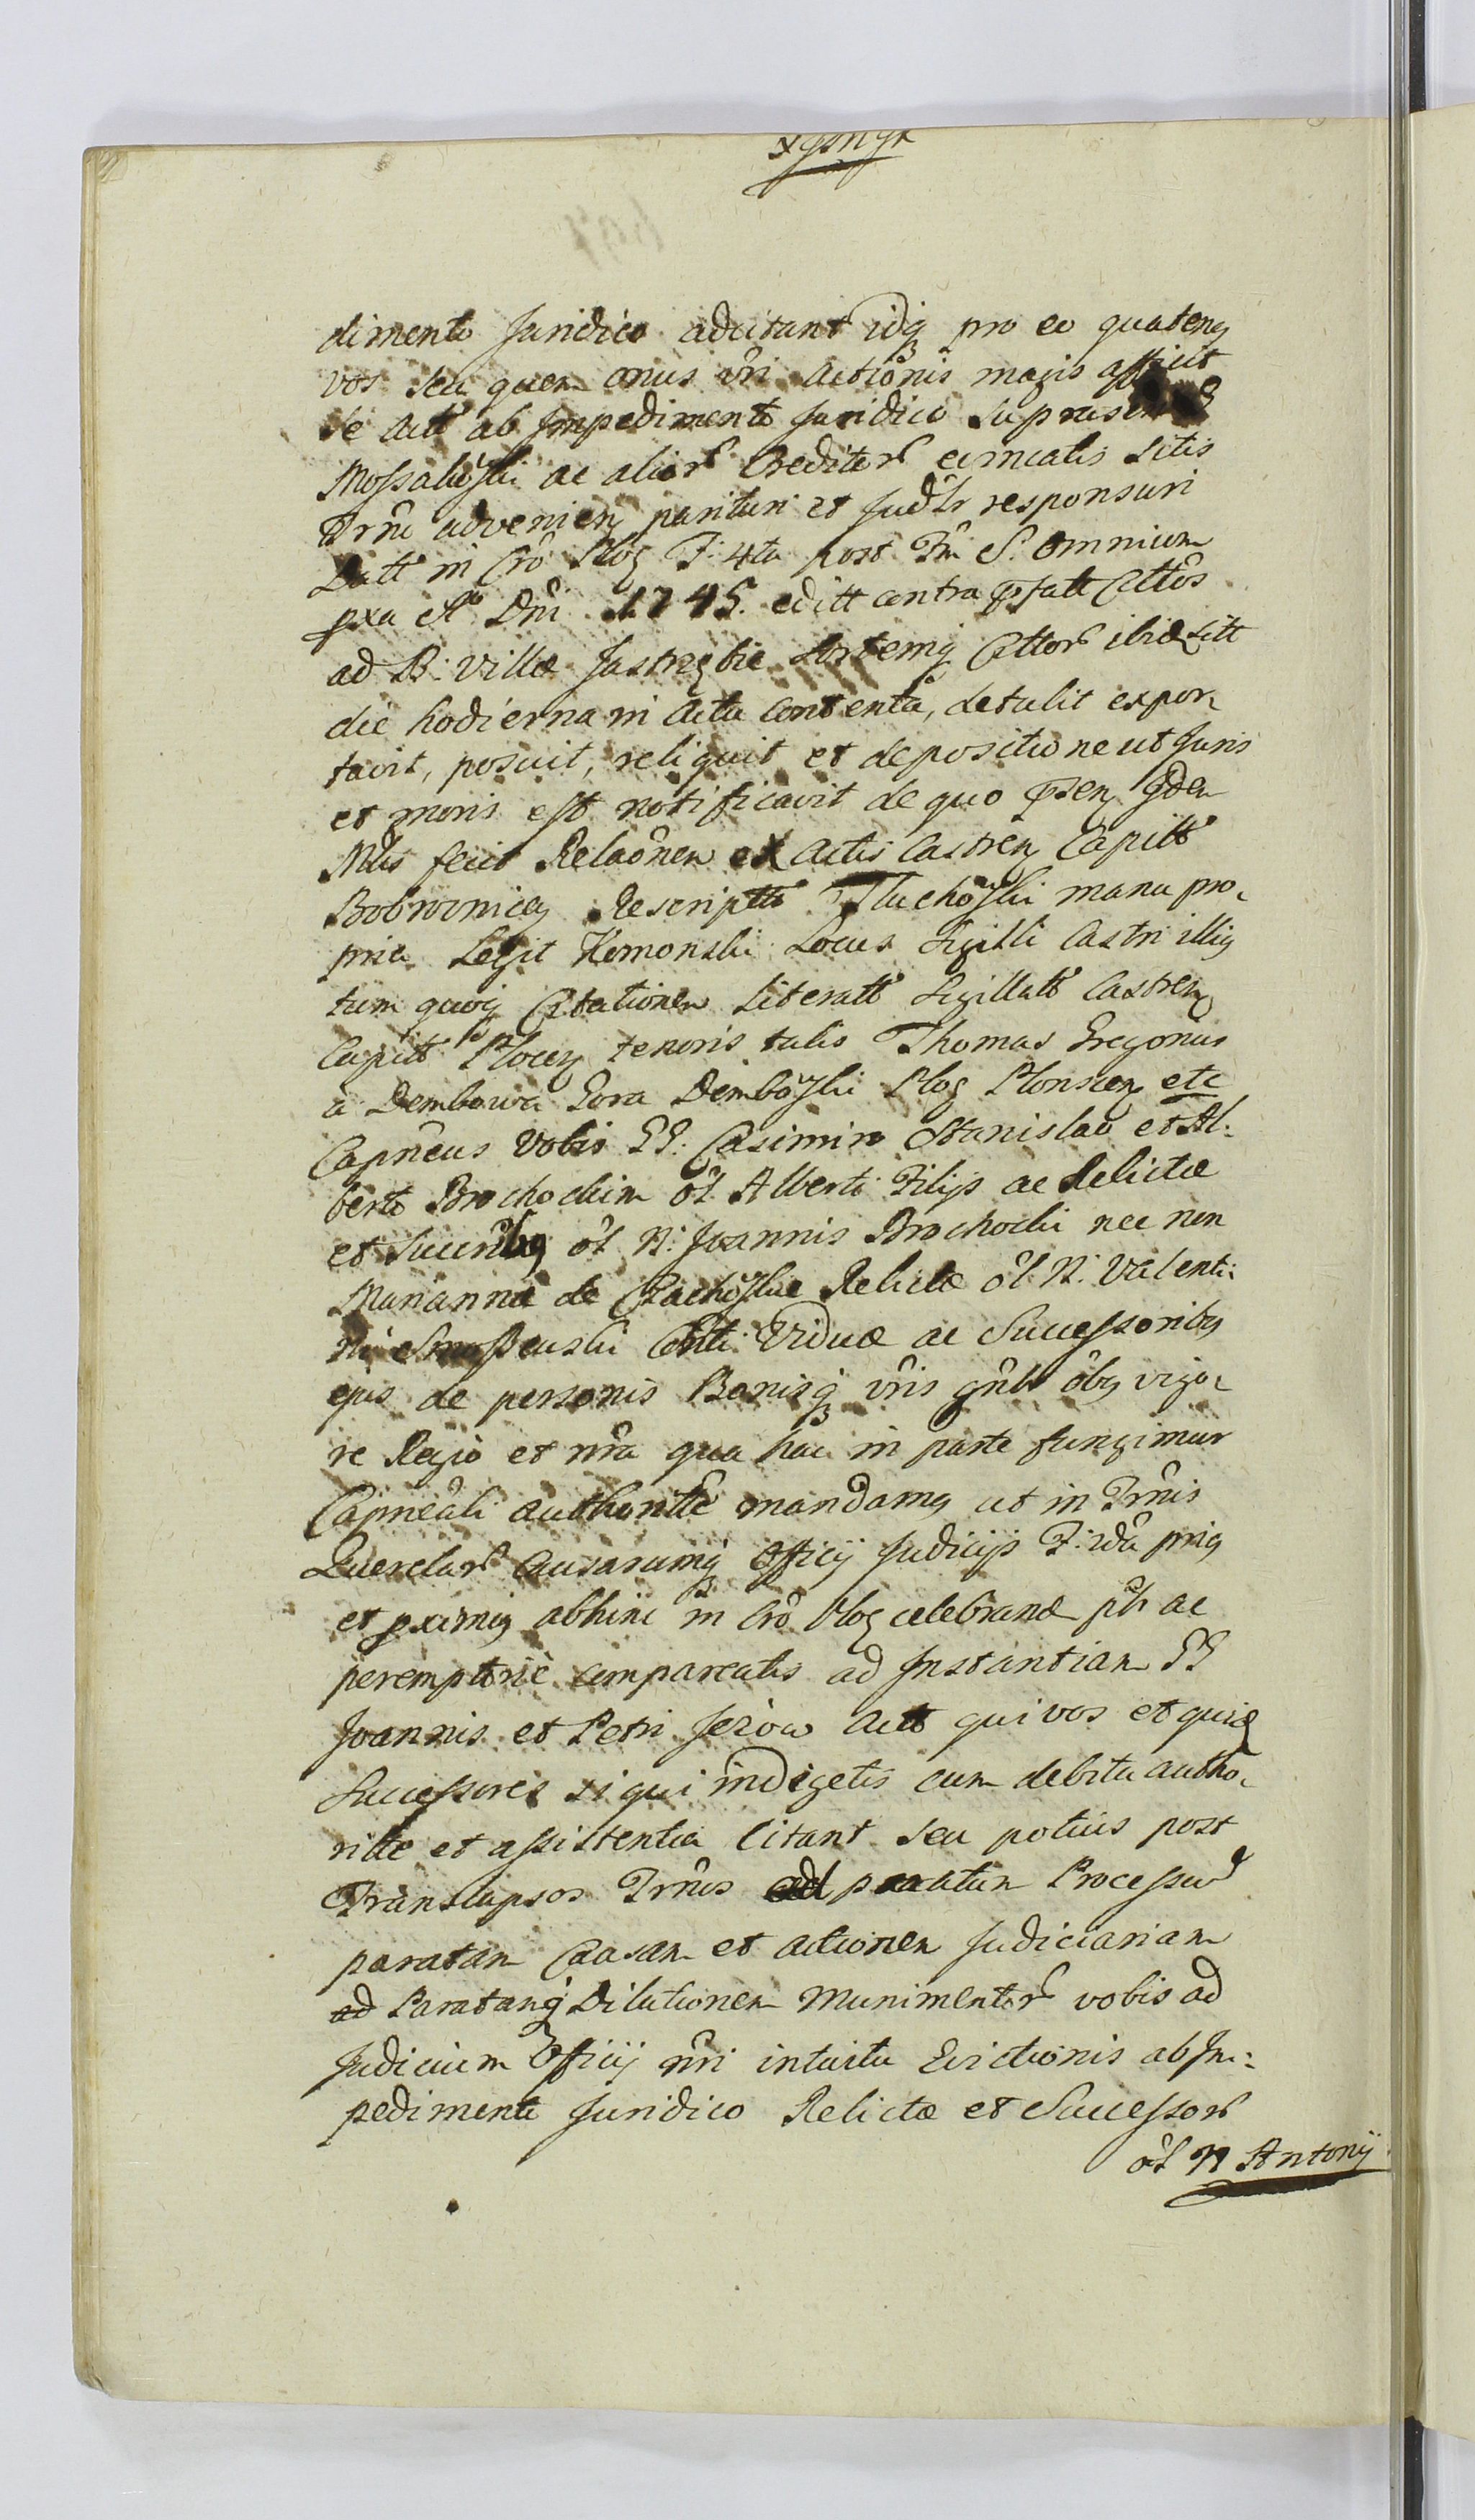 dimento Juridico adcitant idq pro eo quateng
vos seu quem onus vri Actionis magis afficit
se Actt ab Impedimento Juridico
Mossakoski ac alior Creditor eximatis sitis
Trno advenien parituri et Judlr responsuri
Datt in Cro Ploc F: 4ta post Fm S. Omnium
pxa Ao Dni 1745. editt contra Psatt Cittos
ad B: Villæ Jastrzębie Cittor ibid Sitt
die hodierna in Actu Contenta, detulit expor
tavit, posuit, reliquit et depositione ut Juris
et moris est notificavit de quo Psen Idem
Mlis fecit Relaonem ex Actis Castren Capitt
Bobrovnicen Rescriptt Tluchoski manu pro
pria Legit Kemonski Locus Sigilli Castri illig
tum quoq Citationem Literatt Sigillatt Castren
Capitt Plocen tenoris talis Thomas Gregorius
a Dembowa Gora Demboski Ploc Plonscen etc
Capneus Vobis GG. Casimiro Stanislao et Al:
berto Brochockim ol Alberti Filijs ac Relictæ
et Succribg ol N: Joannis Brochocki nec non
Marannæ de Relictæ ol N. Valenti:
ni Cnti Viduæ ac Successoribg
ejus de personis Bonisq vris gnlr obg vigo
re Regio et nra qua hac in parte fungimur
Capneali Authoritte mandamg ut in Trnis
Querelar Causarumq Officij Judicijs F: 2da prig
et pximig abhinc in Cro Ploc celebrand plr ac
peremptorie compareatis ad Instantiam GG
Joannis et Petri Jeżow Actt qui vos et quid
Successores si qui indigetis cum debita autho
ritte et assistentia citant seu potius post
Translapsos Trnos ad paratum Processum
paratam Causam et actionem Judiciariam
ad Paratamq Dilationem Munimentor vobis ad
Judicium Officij nri intuitu Evictionis ab Im:
pedimento Juridico Relictæ et Successor
ol N Antonij